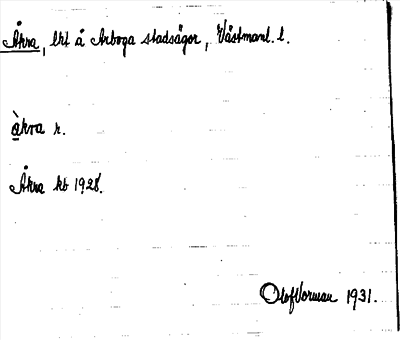 Åkra, lht å Arboga stadsägor, Västmanl. l.
àkra r.
Åkra kb 1928.
Olof Vorman 1931.